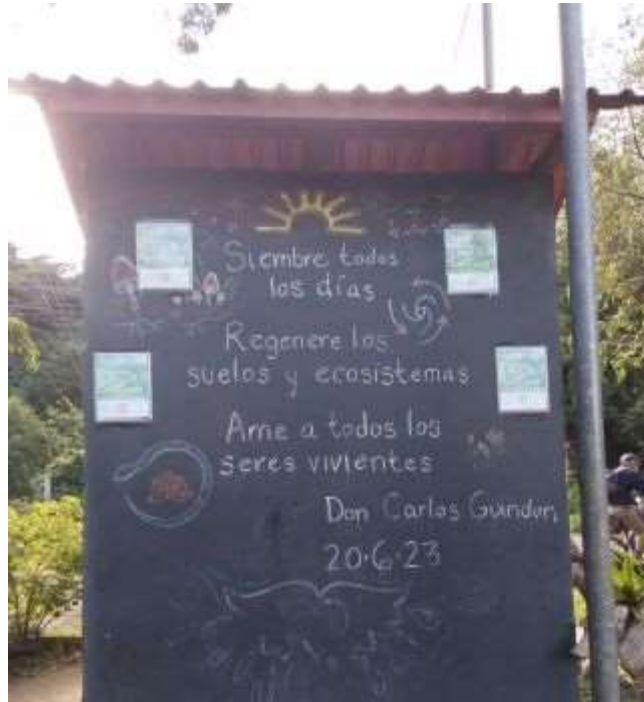 Siembre todos
los días
Regenere los
suelos y ecosistemas
Ame a todos los
seres vivientes
Don Carlos
20·6·23